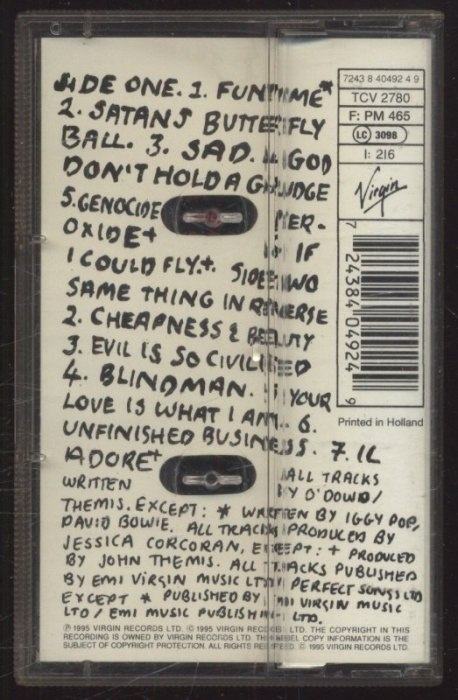 SIDE ONE. 1. FUNTIME*
2. SATANS BUTTERFLY
BALL. 3. SAD. 4. GOD
DON'T HOLD A GRUDGE
5. GENOCIDE PER-
OXIDE+ 6. IF
I COULD FLY+. SIDE TWO
SAME THING IN REVERSE
2. CHEAPNESS & BEAUTY
3. EVIL IS SO CIVILISED
4. BLINDMAN. 5. YOUR
LOVE IS WHAT I AM. 6.
UNFINISHED BUSINESS. 7. IL
ADORE+
WRITTEN ALL TRACKS
BY O'DOWD/
THEMIS. EXCEPT: * WRITTEN BY IGGY POP,
DAVID BOWIE. ALL TRACKS PRODUCED BY
JESSICA CORCORAN, EXCEPT: + PRODUCED
BY JOHN THEMIS. ALL TRACKS PUBLISHED
BY EMI VIRGIN MUSIC LTD/ PERFECT SONGS LTD
EXCEPT * PUBLISHED BY EMI VIRGIN MUSIC
LTD / EMI MUSIC PUBLISHING LTD.
℗ 1995 VIRGIN RECORDS LTD. © 1995 VIRGIN RECORDS LTD. THE COPYRIGHT IN THIS
RECORDING IS OWNED BY VIRGIN RECORDS LTD. THIS LABEL COPY INFORMATION IS THE
SUBJECT OF COPYRIGHT PROTECTION. ALL RIGHTS RESERVED. © 1995 VIRGIN RECORDS LTD.
7243 8 40492 4 9
TCV 2780
F: PM 465
LC 3098
I: 216
Virgin
7 24384 04924 9
Printed in Holland